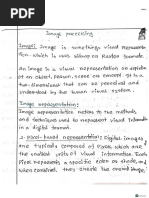 Image processing
Image: Image is somethings visual represnta-
tion which is
An image is a visual representation or depiction
of an object, person, scene or concept in a
two-dimensional that can be perceived and
understood by the human visual system.
Image representation:
Image representation refers to the methods
and techniques used to represent visual information
in a digital format.
1. pixel-based representation: Digital images
are typically composed of pixels, which are
the smallest units of visual information. Each
pixel represents a specific color or shade, and
when combined, they create the overall image.